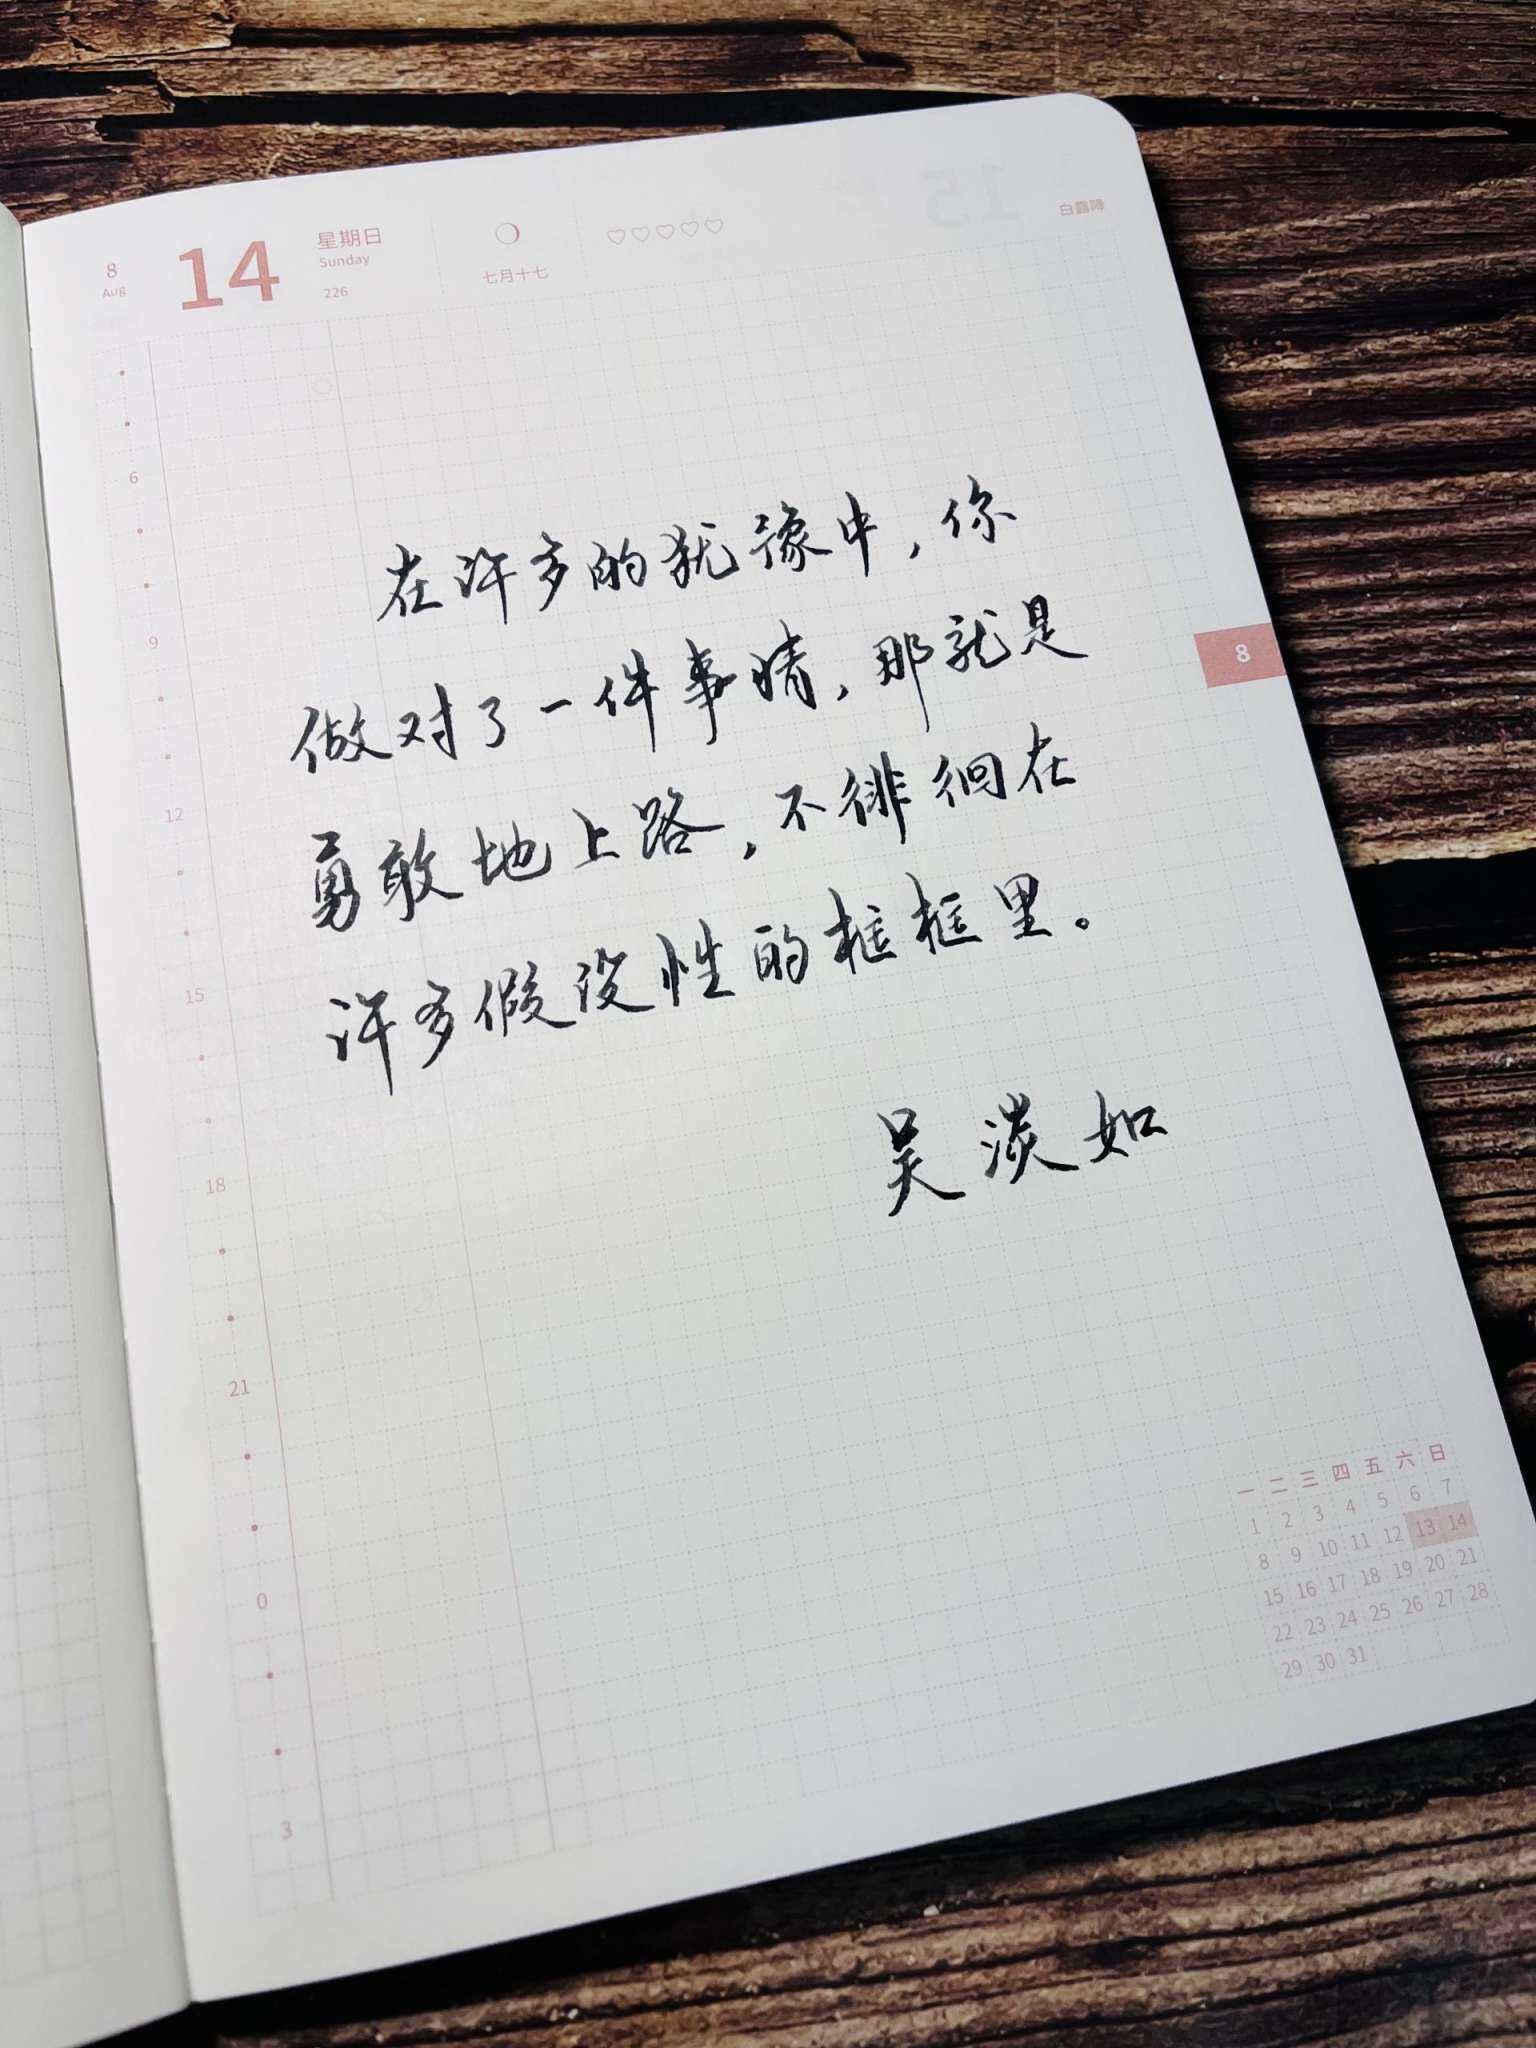 8
Aug
14
星期日
Sunday
226
七月十七
白露降
6
9
12
15
18
21
0
3
在许多的犹豫中，你
做对了一件事情，那就是
勇敢地上路，不徘徊在
许多假设性的框框里。
吴淡如
8
一 二 三 四 五 六 日
1 2 3 4 5 6 7
8 9 10 11 12 13 14
15 16 17 18 19 20 21
22 23 24 25 26 27 28
29 30 31